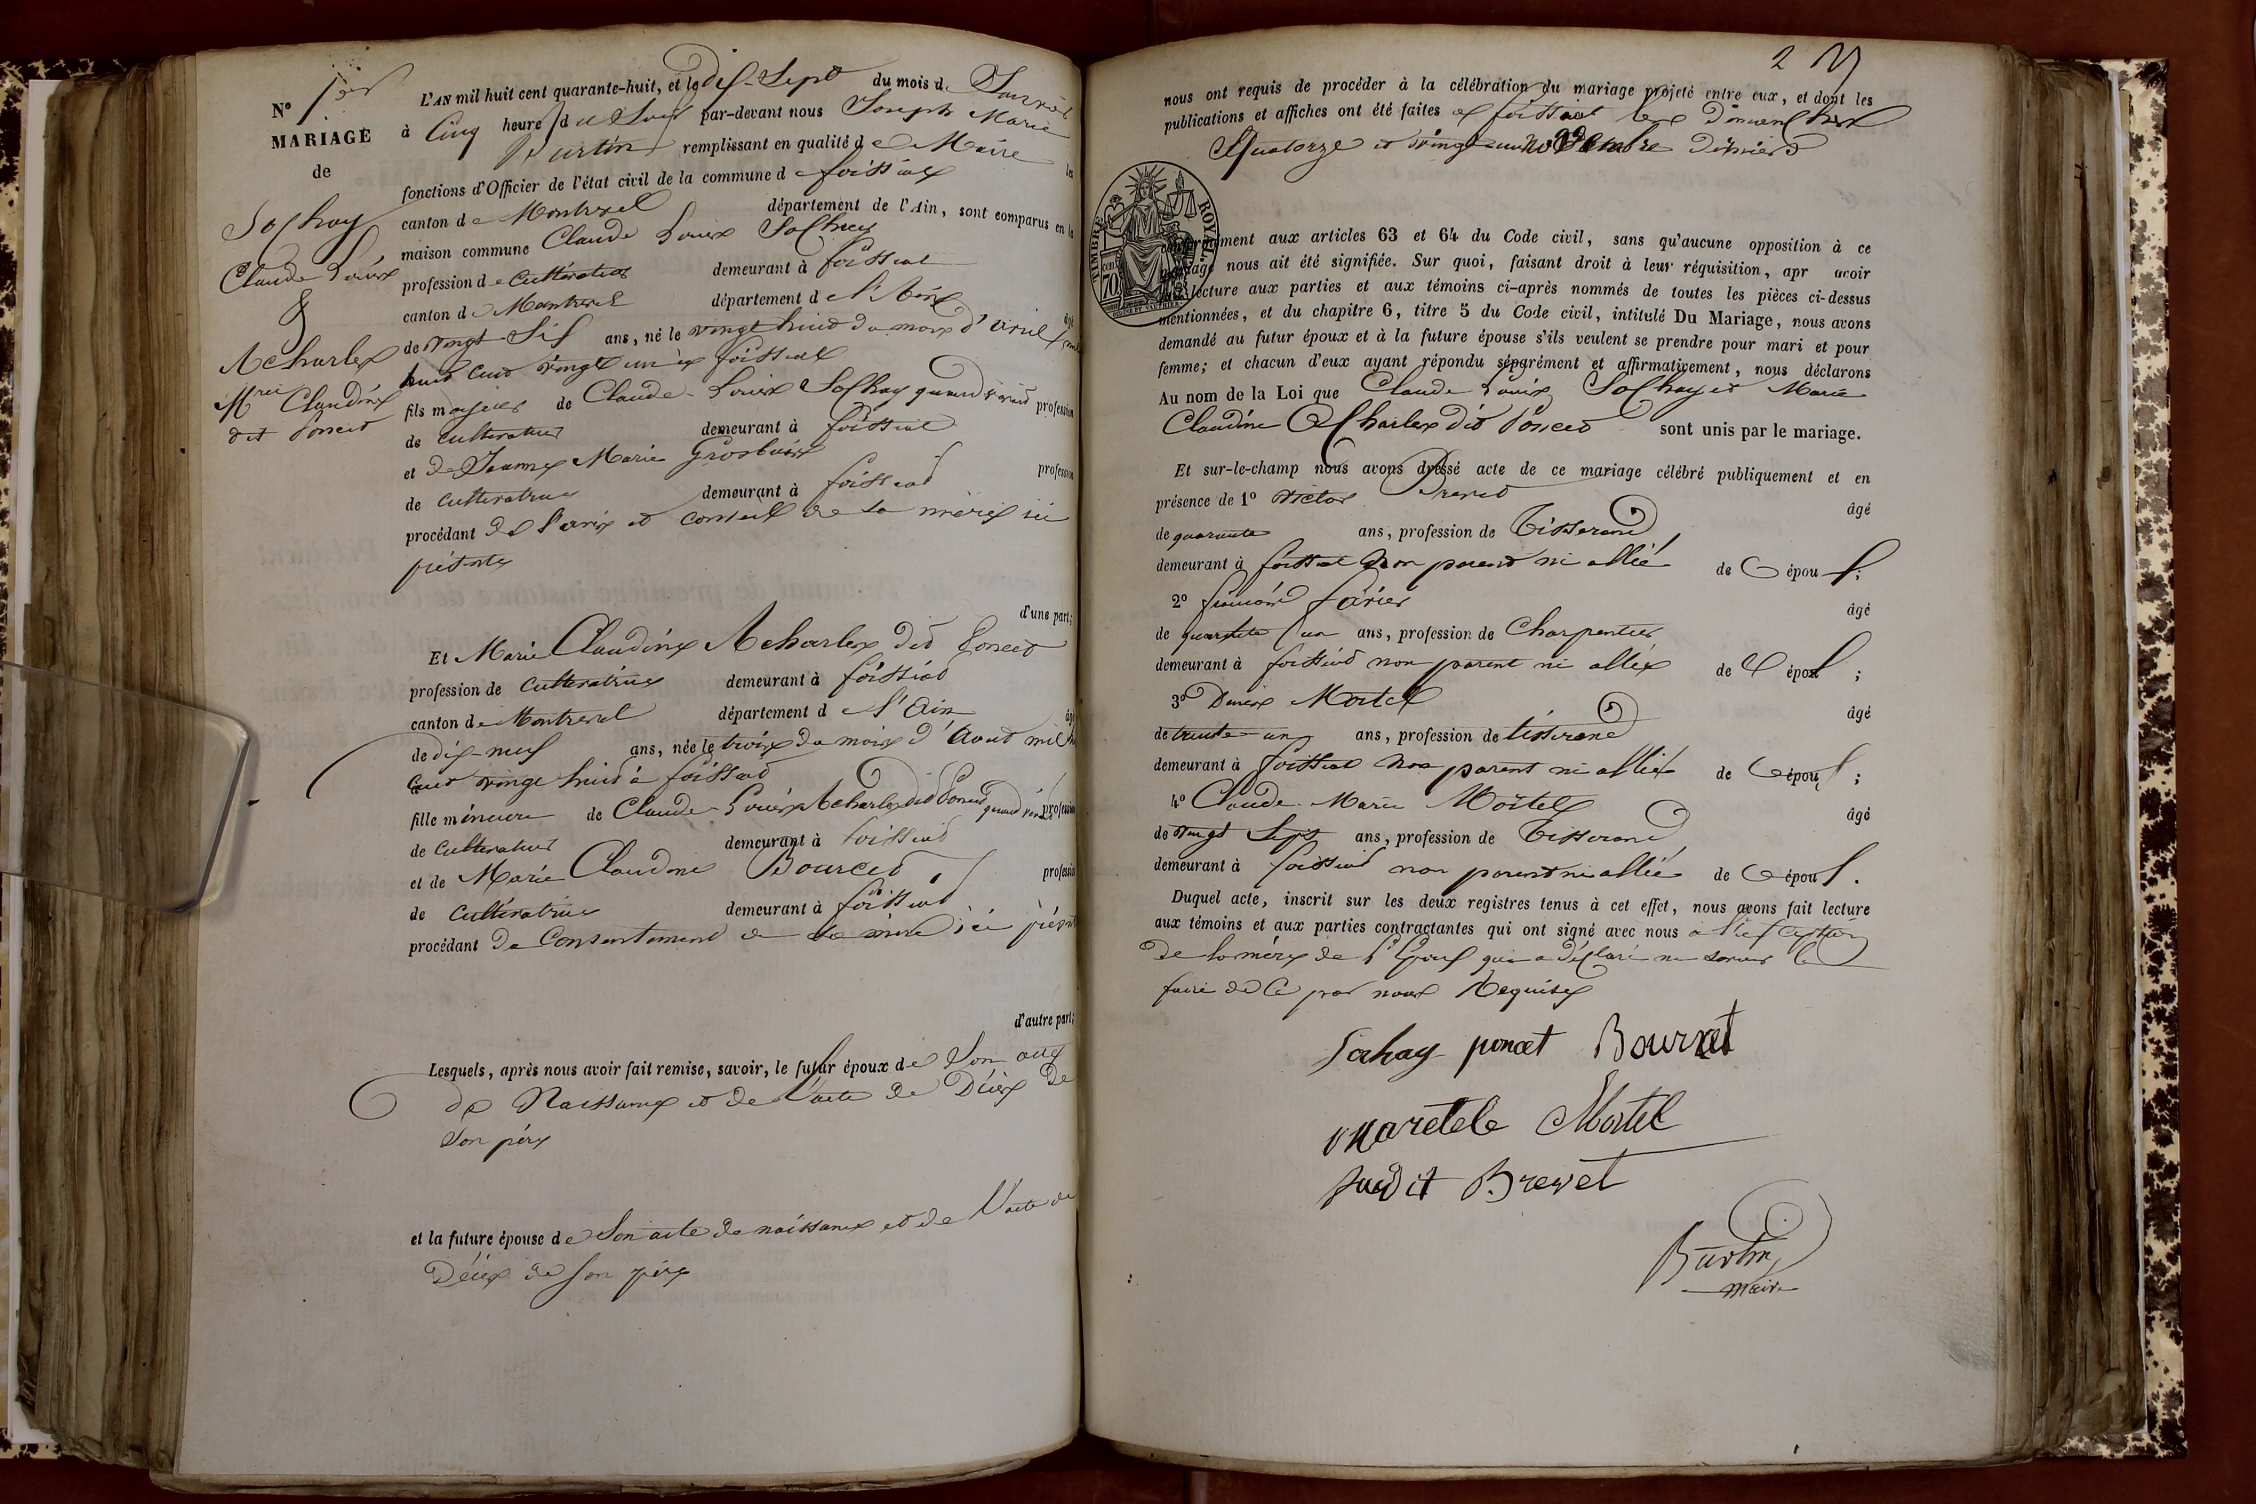 N° 1er
MARIAGE
de
Sochay
Claude Louis
&
Acharles
Mrie Claudine
dit Poncet
L'AN mil huit cent quarante-huit, et le dix-Sept du mois de Janvier
à Cinq heures du Soir par-devant nous Joseph Marie
Burtin remplissant en qualité de Maire les
fonctions d'Officier de l'état civil de la commune de foissiat
canton de Montrevel département de l'Ain, sont comparus en la
maison commune Claude Louis Sochay
profession de cultivateur demeurant à foissiat
canton de Montrevel département de l'Ain âgé
de vingt-Six ans, né le vingt huit du mois d'avril mil
huit cent vingt un à foissiat
fils majeur de Claude-Louis Sochay quand vivait profession
de cultivateur demeurant à foissiat
et de Jeanne Marie Grosbuis profession
de cultivatrice demeurant à foissiat
procédant de l'avis et conseil de sa mère ici
présente
d'une part;
Et Marie Claudine Acharles dit Poncet
profession de cultivatrice demeurant à foissiat
canton de Montrevel département de l'Ain âgé
de dix-neuf ans, née le trois du mois d'Aout mil huit
cent vingt huit à foissiat
fille mineure de Claude-Louis Acharles dit Poncet quand vivait profession
de cultivateur demeurant à foissiat
et de Marie Claudine Bourcet profession
de cultivatrice demeurant à foissiat
procédant de Consentement de sa mère ici présente
d'autre part;
Lesquels, après nous avoir fait remise, savoir, le futur époux de Son acte
de Naissance et de l'acte de Décès de
Son père
et la future épouse de Son acte de naissance et de l'acte de
Décès de son père
2
nous ont requis de procéder à la célébration du mariage projeté entre eux, et dont les
publications et affiches ont été faites à foissiat les dimanches
Quatorze et vingt un novembre dernier
TIMBRE ROYAL
70
conformément aux articles 63 et 64 du Code civil, sans qu'aucune opposition à ce
mariage nous ait été signifiée. Sur quoi, faisant droit à leur réquisition, apr avoir
lecture aux parties et aux témoins ci-après nommés de toutes les pièces ci-dessus
mentionnées, et du chapitre 6, titre 5 du Code civil, intitulé Du Mariage, nous avons
demandé au futur époux et à la future épouse s'ils veulent se prendre pour mari et pour
femme; et chacun d'eux ayant répondu séparément et affirmativement, nous déclarons
Au nom de la Loi que Claude Louis Sochay et Marie
Claudine Acharles dit Poncet sont unis par le mariage.
Et sur-le-champ nous avons dressé acte de ce mariage célébré publiquement et en
présence de 1° Victor Brevet âgé
de quarante ans, profession de Tisserand
demeurant à foissiat non parent ni allié de l'époux;
2° françois âgé
de quarante un ans, profession de Charpentier
demeurant à foissiat non parent ni allié de l'époux;
3° Denis Mortel âgé
de trente-un ans, profession de tisserand
demeurant à foissiat non parent ni allié de l'époux;
4° Claude-Marie Mortel âgé
de vingt Sept ans, profession de Tisserand
demeurant à foissiat non parent ni allié de l'époux.
Duquel acte, inscrit sur les deux registres tenus à cet effet, nous avons fait lecture
aux témoins et aux parties contractantes qui ont signé avec nous à l'exception
de la mère de l'Époux qui a déclaré ne savoir le
faire de ce par nous Requise
Sochay poncet Bourcet
Mortel
Brevet
Burtin
maire